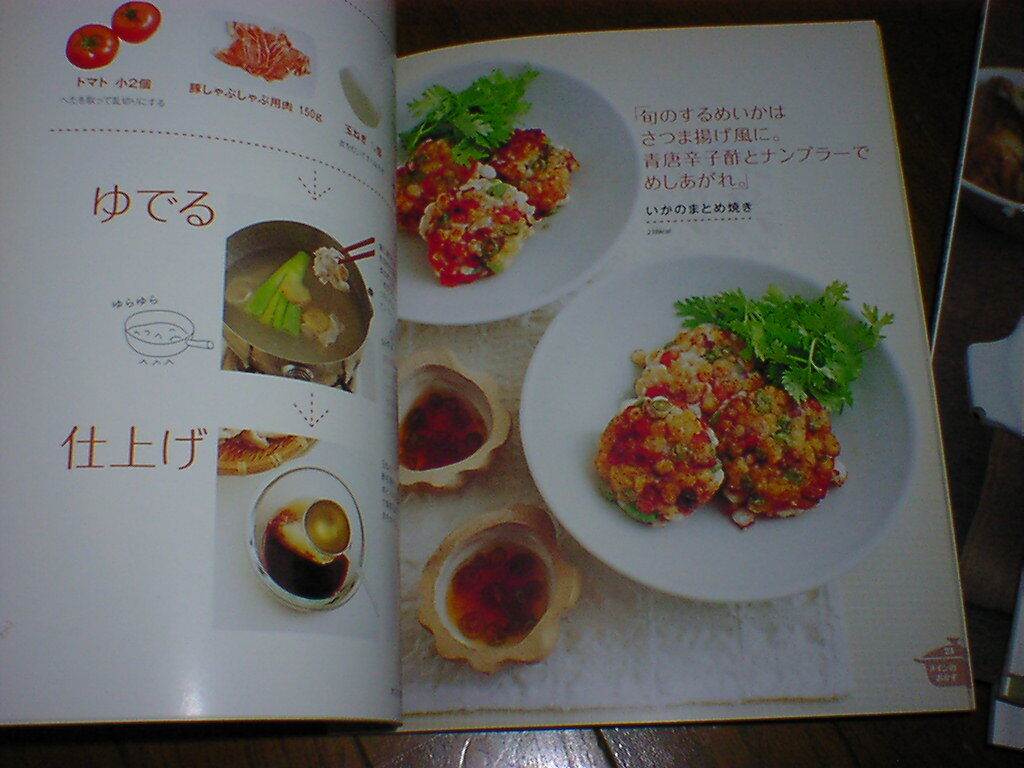 トマト 小2個
へたを取って乱切りにする
豚しゃぶしゃぶ用肉 150g
玉ねぎ
ゆでる
ゆらゆら
仕上げ
「旬のするめいかは
さつま揚げ風に。
青唐辛子酢とナンプラーで
めしあがれ。」
いかのまとめ焼き
メインの
おかず